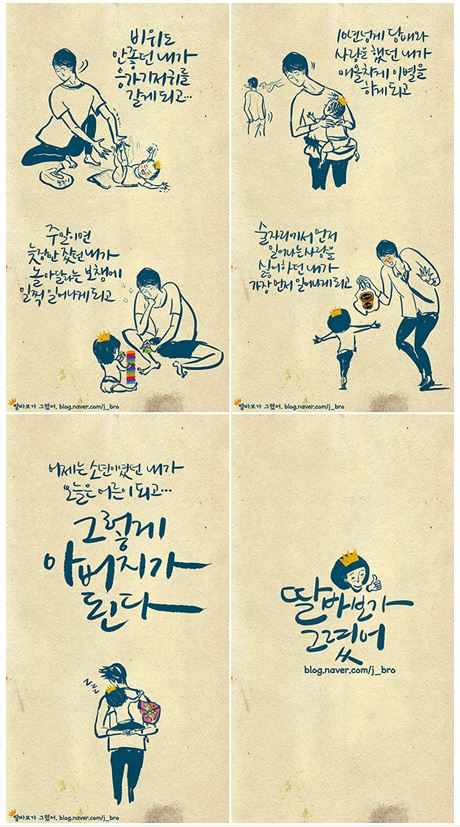 비위도
안좋던 내가
응가기저귀를
갈게 되고...
10년넘게 담배와
사랑을 했던 내가
매몰차게 이별을
하게 되고
주말이면
늦잠만 잤던 내가
놀아달라는 보챔에
일찍 일어나게 되고
술자리에서 먼저
일어나는 사람을
싫어하던 내가
가장 먼저 일어나게 되고
딸바보가 그렸어. blog.naver.com/j_bro
딸바보가 그렸어. blog.naver.com/j_bro
어제는 소년이였던 내가
오늘은 어른이 되고...
그렇게
아버지가
된다
zzz
딸바보가 그렸어. blog.naver.com/j_bro
딸바보가
그렸어
blog.naver.com/j_bro